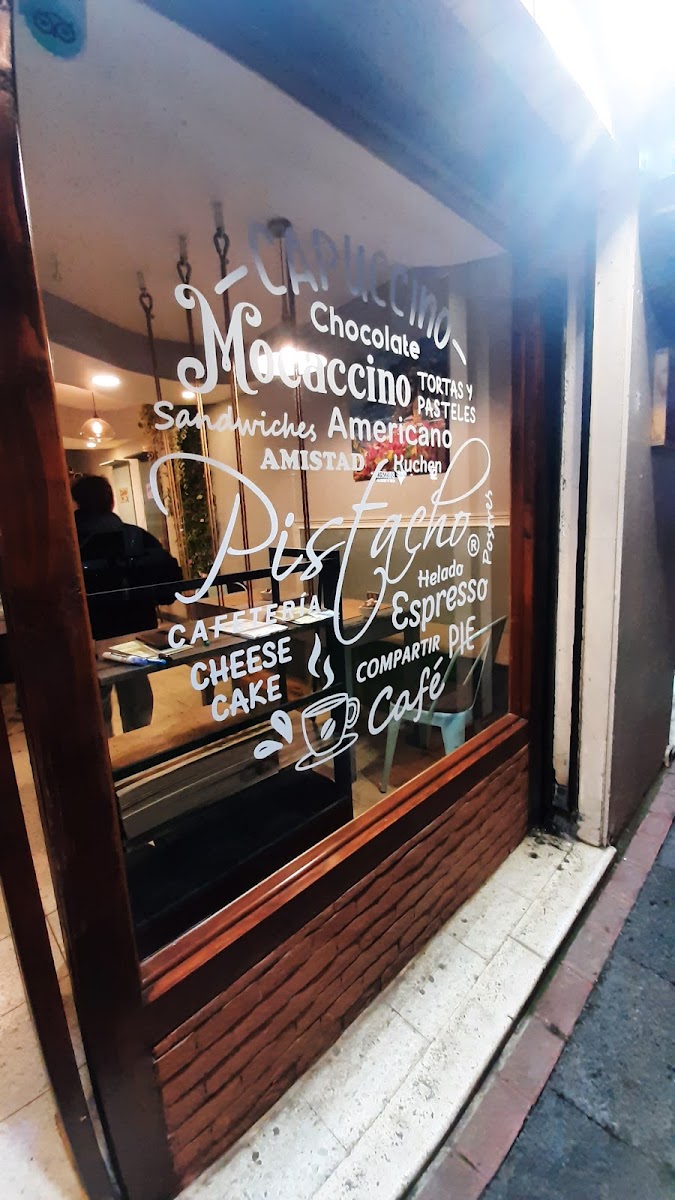 CAPUCCINO
Chocolate
Mocaccino
TORTAS Y
PASTELES
Sandwiches
Americano
AMISTAD
Kuchen
Pistacho ®
Postres
Helado
CAFETERÍA
Espresso
CHEESE
CAKE
COMPARTIR
PIE
Café